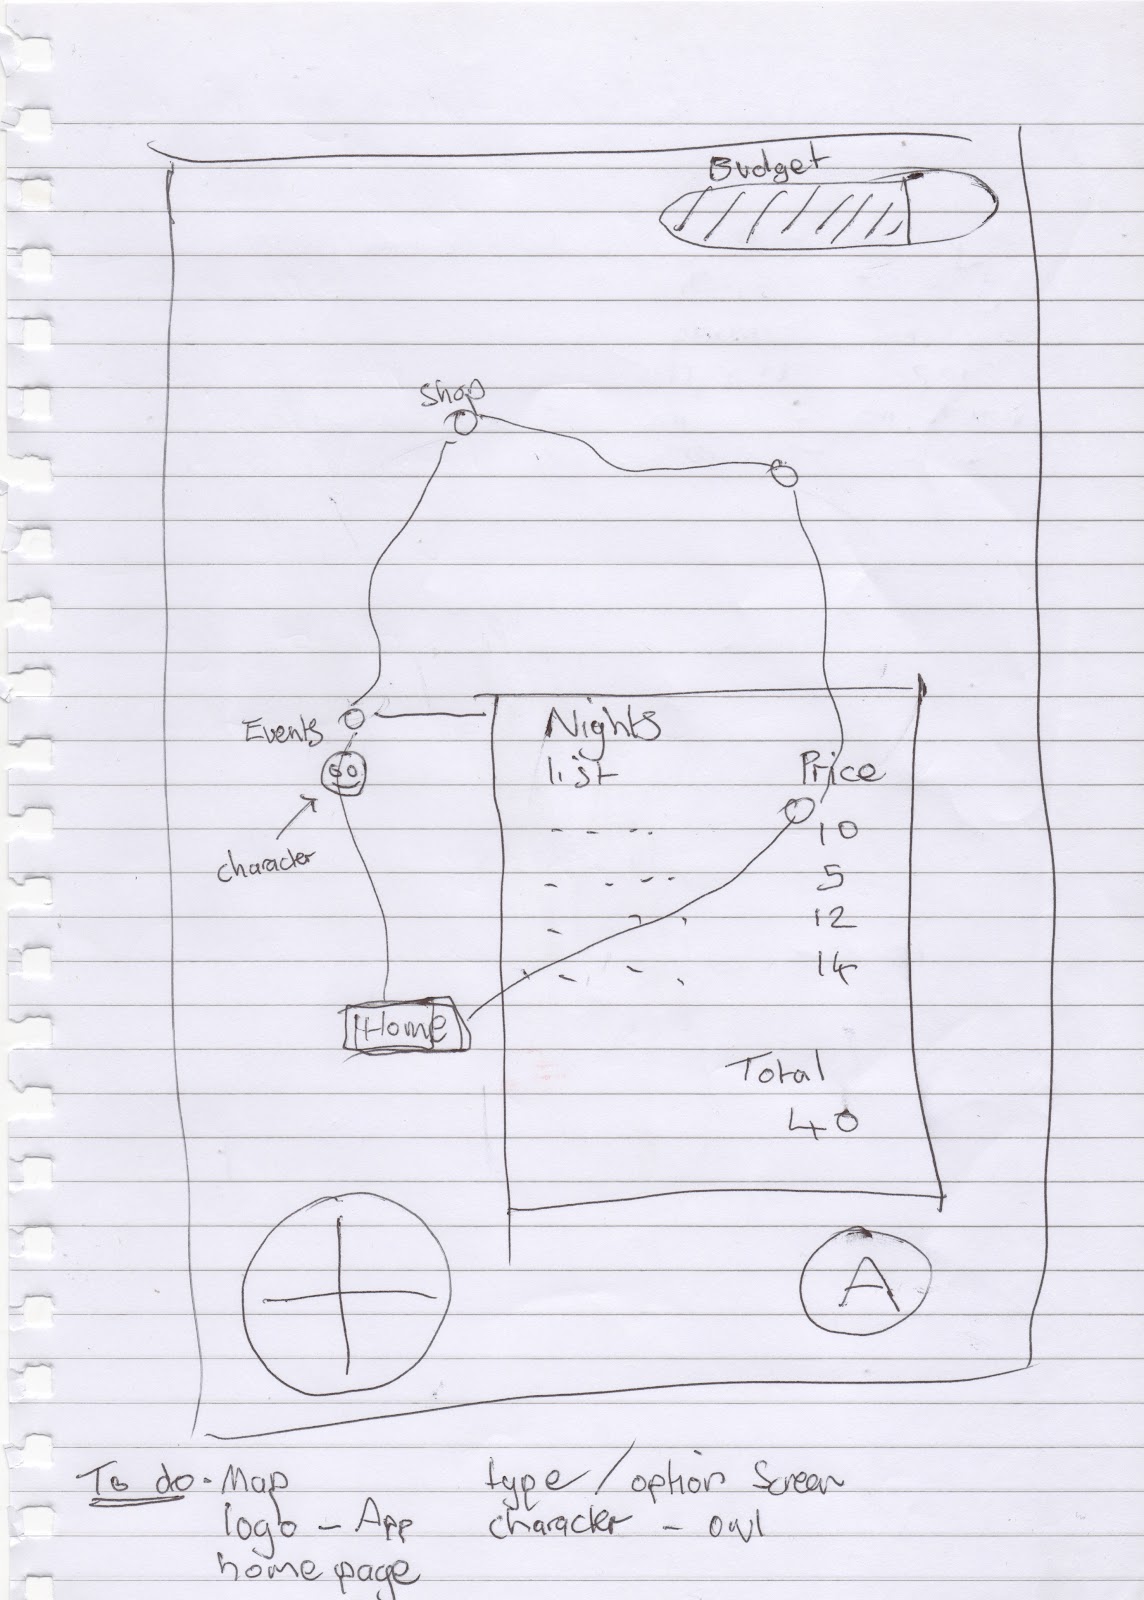 Budget
Shop
Events
Nights
list
Price
10
5
12
14
character
Home
Total
40
A
To do - Map
logo - App
home page
type / option Screen
character - owl